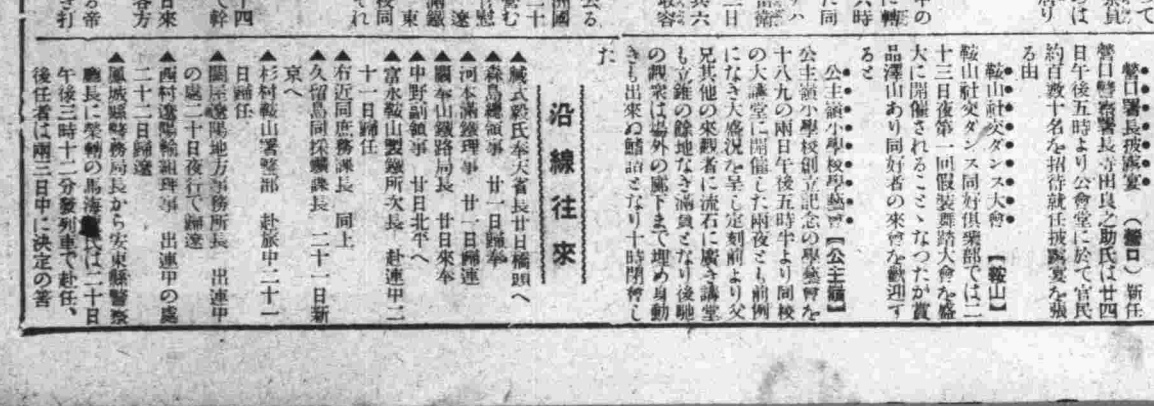 營口署長披露宴
(營口)新任
營口警察署長寺田良之助氏は廿四
日午後五時より公會堂に於て官民
約百數十名を招待就任披露宴を張
る由
鞍山社交ダンス大會
【鞍山】
鞍山社交ダンス同好俱樂部では二
十三日夜第一回假裝舞踏大會を盛
大に開催されることゝなつたが賞
品澤山あり同好者の來會を歡迎す
ると
公主嶺小學校學藝會【公主嶺】
公主嶺小學校創立記念の學藝會を
十八九の兩日午後五時半より同校
の大講堂に開催した兩夜とも前例
になき大盛況を呈し定刻前より父
兄其他の來觀者に流石に廣き講堂
も立錐の餘地なき滿員となり後馳
の觀衆は場外の廊下まで埋め身動
きも出來ぬ鮨詰となり十時閉會し
た
沿線往來
▲臧式毅氏奉天省長廿日橋頭へ
▲森島總領事 廿一日歸奉
▲河本滿鐵理事 廿一日歸連
▲闞奉山鐵路局長 廿日來奉
▲中野副領事 廿日北平へ
▲富永鞍山製鐵所次長 赴連中二
十一日歸任
▲右近同庶務課長 同上
▲久留島同採鑛課長 二十一日新
京へ
▲杉村鞍山署警部 赴旅中二十一
日歸任
▲關屋遼陽地方事務所長 出連中
の處二十日夜行で歸遼
▲西村遼陽輸組理事 出連中の處
二十二日歸遼
▲鳳城縣警務局長から安東縣警察
廳長に榮轉の馬海氏は二十日
午後三時十二分發列車で赴任、
後任者は兩三日中に決定の筈